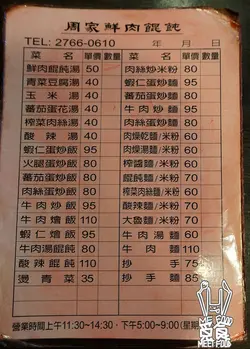 周家鮮肉餛飩
TEL: 2766-0610 年 月 日
菜名 單價 數量 菜名 單價 數量
鮮肉餛飩湯 50 肉絲炒米粉 80
青菜豆腐湯 40 蝦仁蛋炒麵 95
玉米湯 40 番茄蛋炒麵 80
番茄蛋花湯 40 肉絲蛋炒麵 80
榨菜肉絲湯 40 肉燥乾麵/米粉 60
酸辣湯 40 肉燥湯麵/米粉 60
蝦仁蛋炒飯 95 榨醬麵/米粉 60
火腿蛋炒飯 80 餛飩麵/米粉 80
番茄蛋炒飯 80 榨菜肉絲麵/米粉
肉絲蛋炒飯 80 酸辣麵/米粉
牛肉炒飯 110 大魯麵/米粉
牛肉燴飯 110 牛肉湯麵 60
蝦仁燴飯 110 牛肉麵 110
牛肉湯餛飩 80 抄手
酸辣餛飩 80 抄手麵 85
燙青菜 35
營業時間上午11:30~14:30，下午5:00~9:00(星期